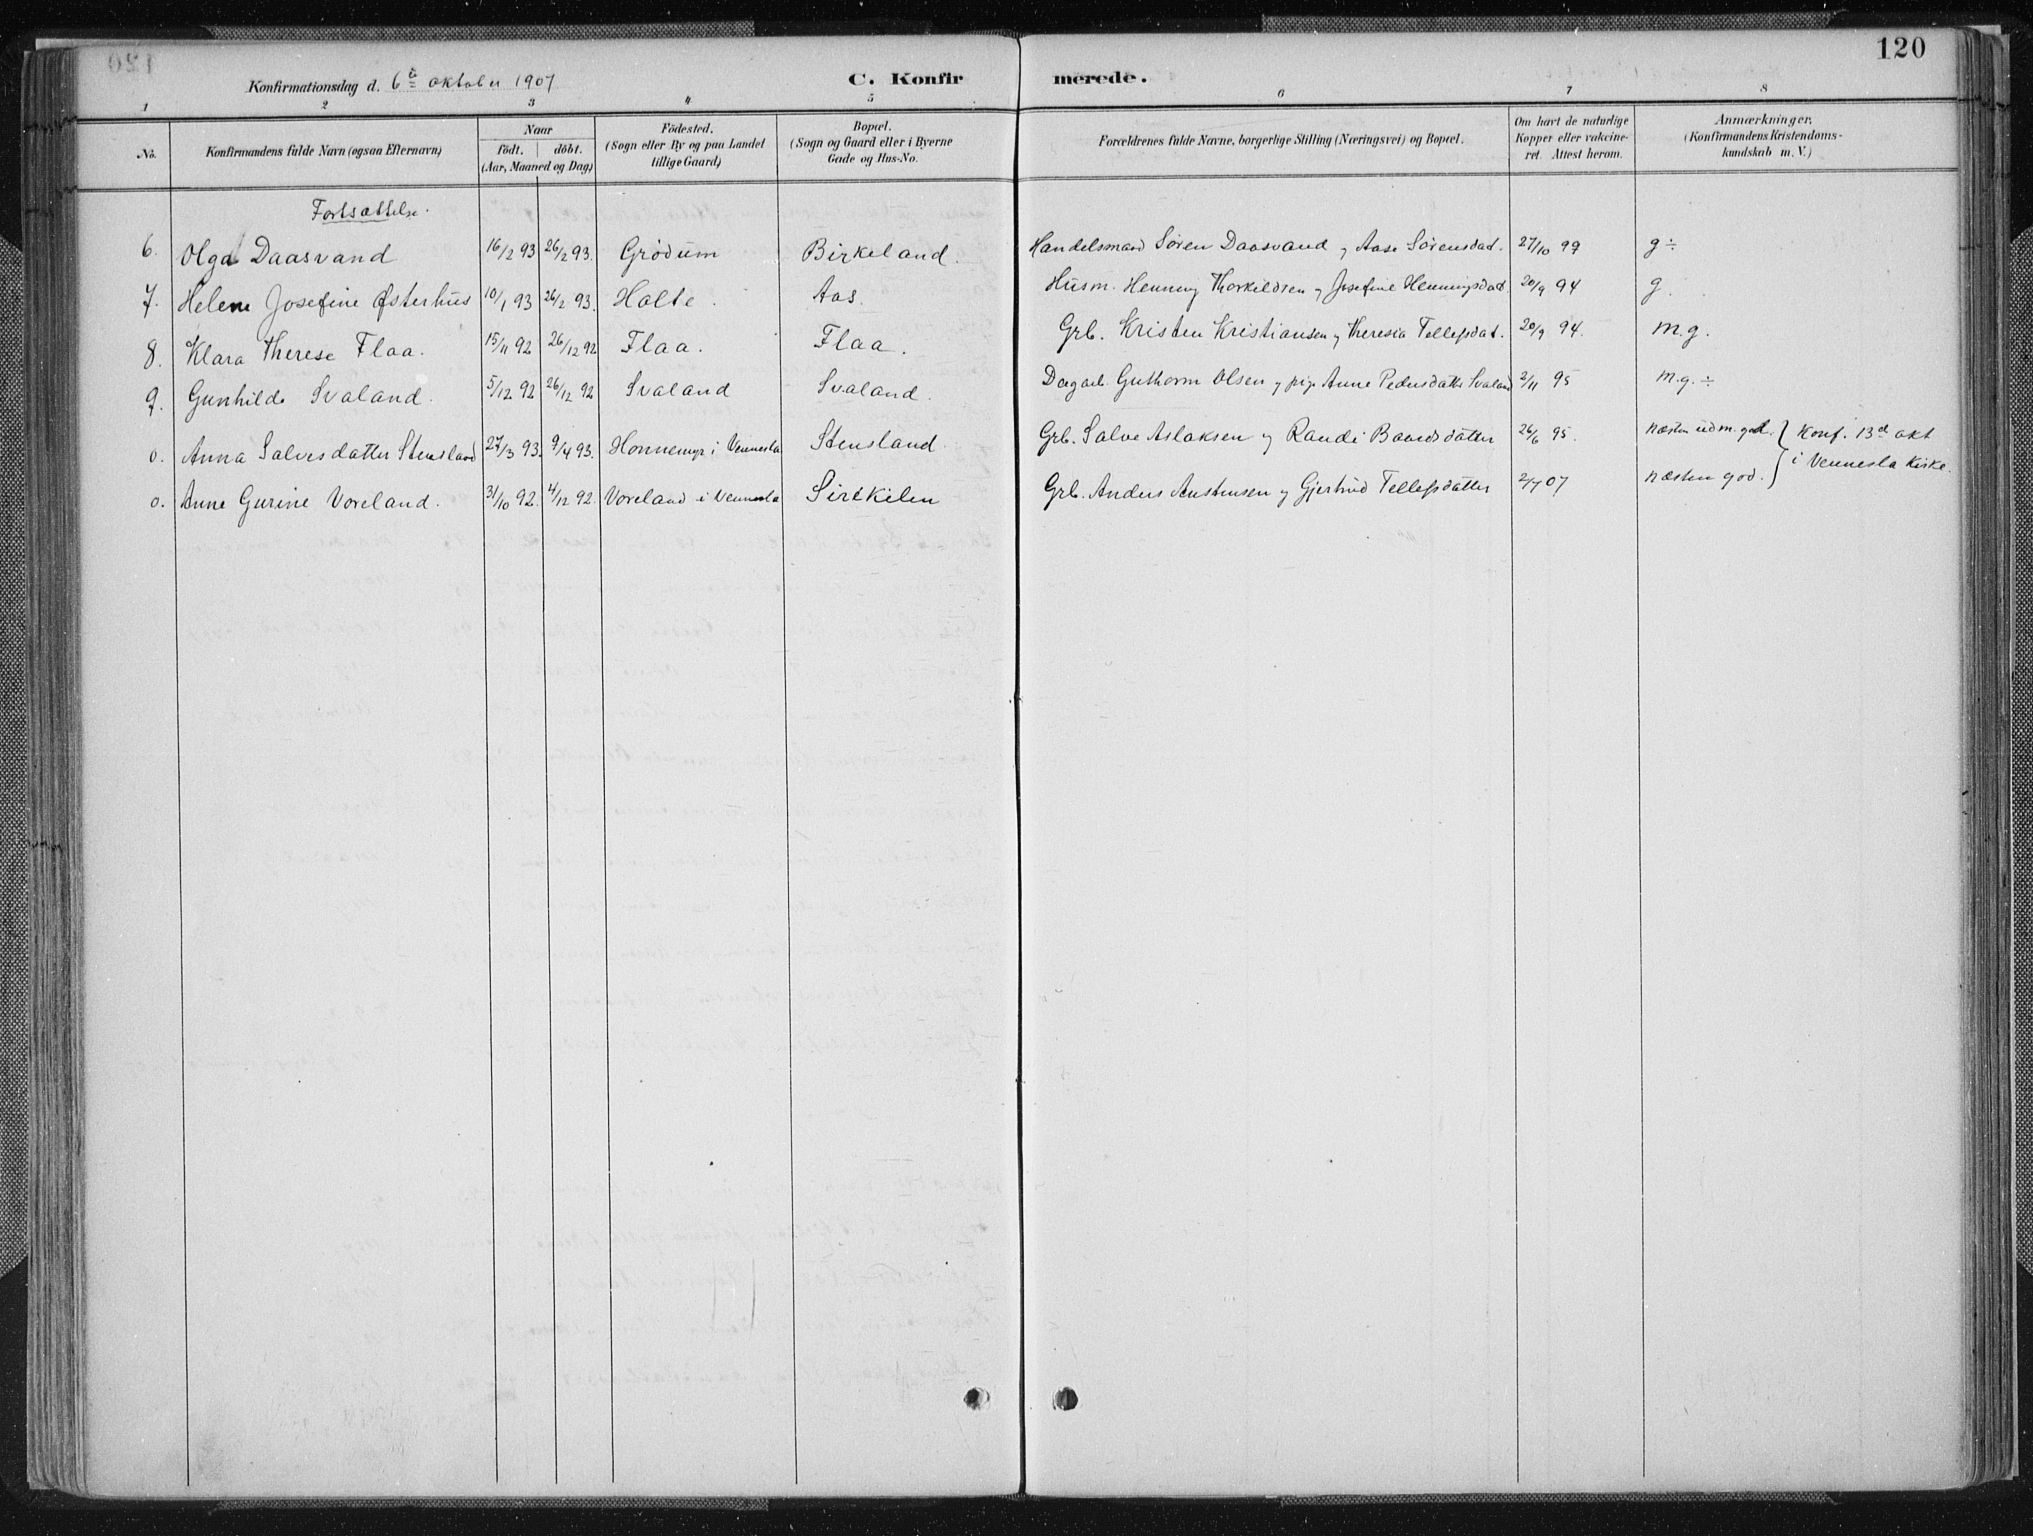 120
Konfirmationsdag d. 6te oktober 1907 C. Konfirmerede.
1 2 3 4 5 6 7 8
No. Konfirmandens fulde Navn (ogsaa Efternavn) Naar födt. döbt. (Aar, Maaned og Dag) Födested. (Sogn eller By og paa Landet tillige Gaard) Bopæl. (Sogn og Gaard eller i Byerne Gade og Hus-No. Forældrenes fulde Navne, borgerlige Stilling (Næringsvei) og Bopæl. Om havt de naturlige Kopper eller vakcineret. Attest herom. Anmærkninger, (Konfirmandens Kristendomskundskab m. V.)
Fortsættelse.
6. Olga Daasvand 16/2 93 26/2 93. Grödum Birkeland. Handelsmand Sören Daasvand og Aase Sörensdat. 27/10 99 g÷
7. Helene Josefine Østerhus 10/1 93 26/2 93. Holte. Aas. Husm. Henning Thorkildsen og Josefine Henningsdat. 20/9 94 g.
8. Klara Therese Flaa. 15/11 92 26/12 92 Flaa. Flaa. Grb. Kristen Kristiansen og Theresia Tellefsdat. 20/9 94. m.g.
9. Gunhilde Svaland. 5/12 92 26/12 92 Svaland Svaland. Dagarb. Guthorm Olsen og pige Anne Pedersdatter Svaland 2/11 95 m.g.÷
0. Anna Salvesdatter Stensland 27/3 93. 9/4 93. Honnemyr i Vennesla Stensland Grb. Salve Aslaksen og Randi Baardsdatter 26/6 95. næsten udm. god. } Konf. 13d okt
0. Anne Gurine Voreland. 31/10 92. 4/12 92. Voreland i Vennesla Sirekilen Grb. Anders Austensen og Gjertrud Tellefsdatter 2/7 07 næsten god. } i Vennesla Kirke.